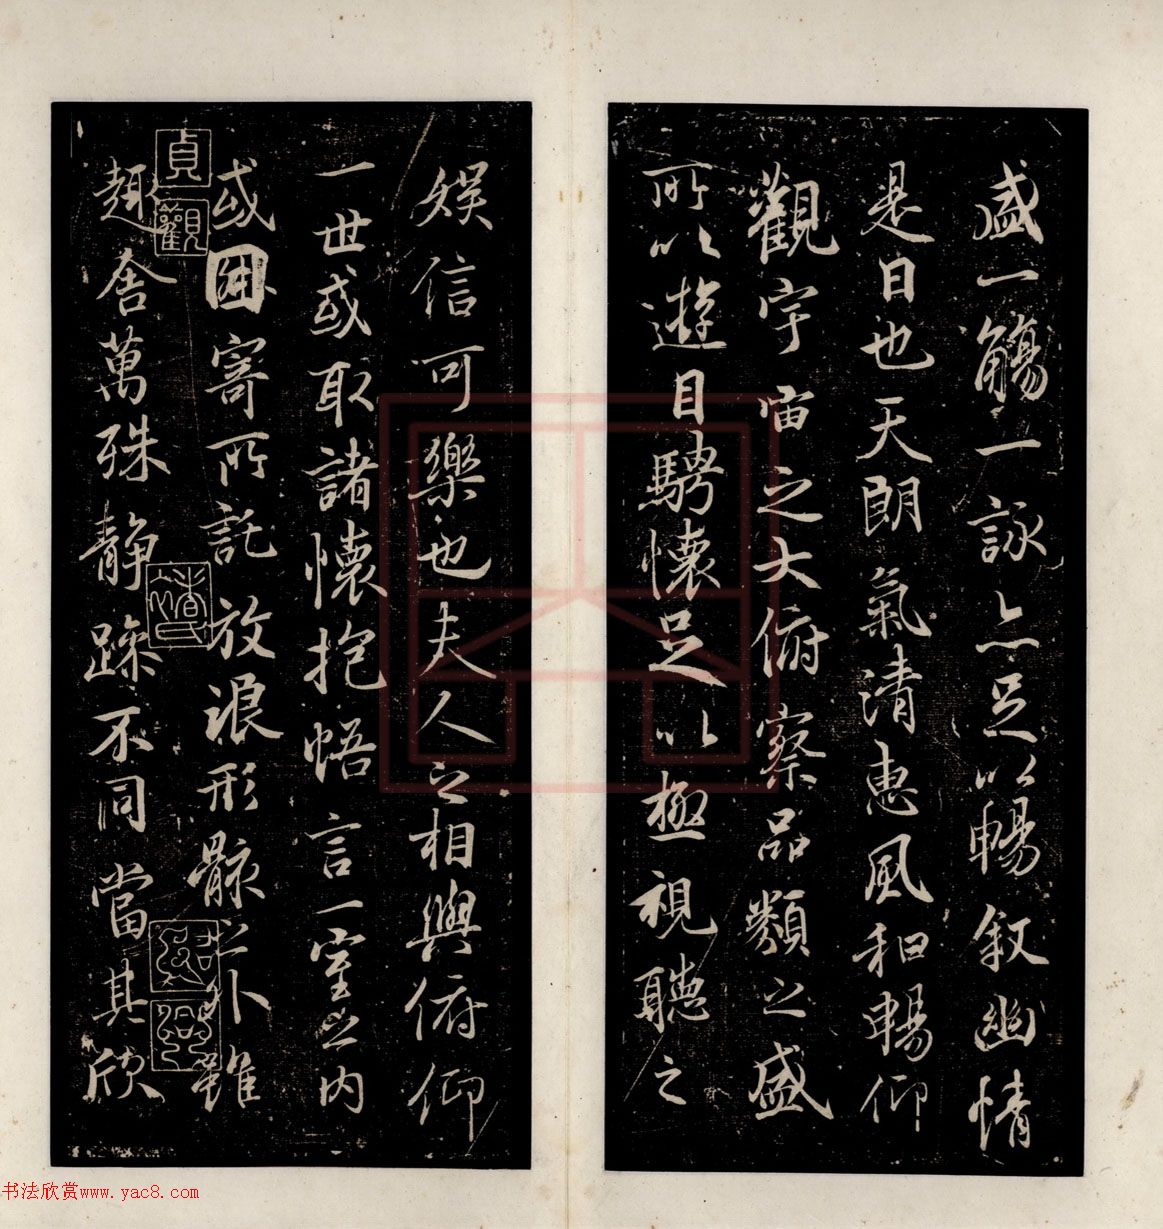 盛一觴一詠亦足以暢叙幽情
是日也天朗氣清惠風和暢仰
觀宇宙之大俯察品類之盛
所以遊目騁懷足以極視聽之
娛信可樂也夫人之相與俯仰
一世或取諸懷抱悟言一室之内
或因寄所託放浪形骸之外雖
趣舍萬殊静躁不同當其欣
貞
觀
书法欣赏www.yac8.com